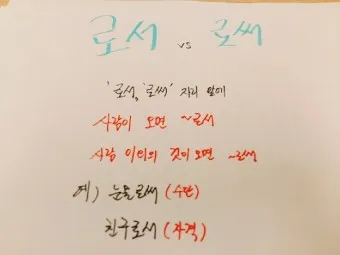 로서 vs 로써
'로서, '로써' 자리 앞에
사람이 오면 ~로서
사람 이외의 것이 오면 ~로써
예) 눈물로써 (수단)
친구로서 (자격)